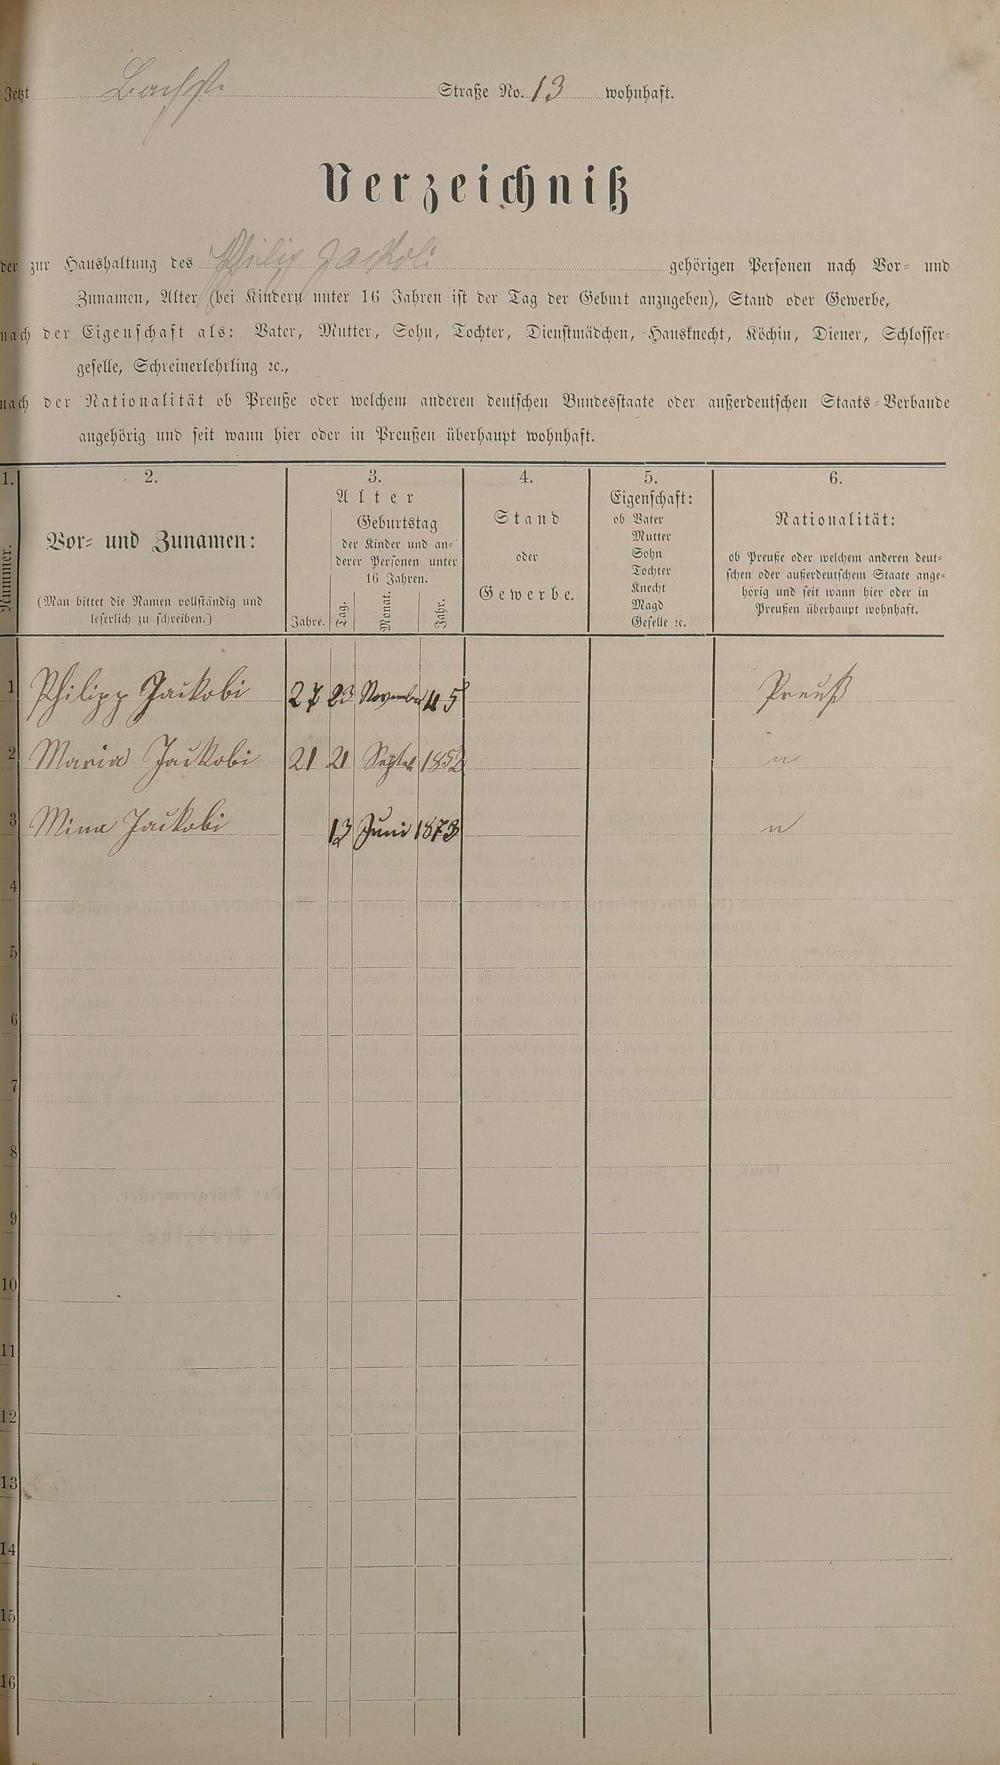 Jetzt Bachst. Straße No. 13 wohnhaft.
Verzeichniß
der zur Haushaltung des Philip Jackobi gehörigen Personen nach Vor- und
Zunamen, Alter (bei Kindern unter 16 Jahren ist der Tag der Geburt anzugeben), Stand oder Gewerbe,
nach der Eigenschaft als: Vater, Mutter, Sohn, Tochter, Dienstmädchen, Hausknecht, Köchin, Diener, Schlosser-
geselle, Schreinerlehrling ꝛc.,
nach der Nationalität ob Preuße oder welchem anderen deutschen Bundesstaate oder außerdeutschen Staats-Verbande
angehörig und seit wann hier oder in Preußen überhaupt wohnhaft.
1.
Nummer.
2.
Vor- und Zunamen:
(Man bittet die Namen vollständig und
leserlich zu schreiben.)
3.
Alter
Geburtstag
der Kinder und an-
derer Personen unter
16 Jahren.
Jahre. Tag. Monat. Jahr.
4.
Stand
oder
Gewerbe.
5.
Eigenschaft:
ob Vater
Mutter
Sohn
Tochter
Knecht
Magd
Geselle ꝛc.
6.
Nationalität:
ob Preuße oder welchem anderen deut-
schen oder außerdeutschem Staate ange-
hörig und seit wann hier oder in
Preußen überhaupt wohnhaft.
1 Philipp Jackobi 27 23 November 45 Preuß
2 Maria Jackobi 21 21 Septen 1852 "
3 Mina Jackobi 13 Juni 1873 "
4
5
6
7
8
9
10
11
12
13
14
15
16